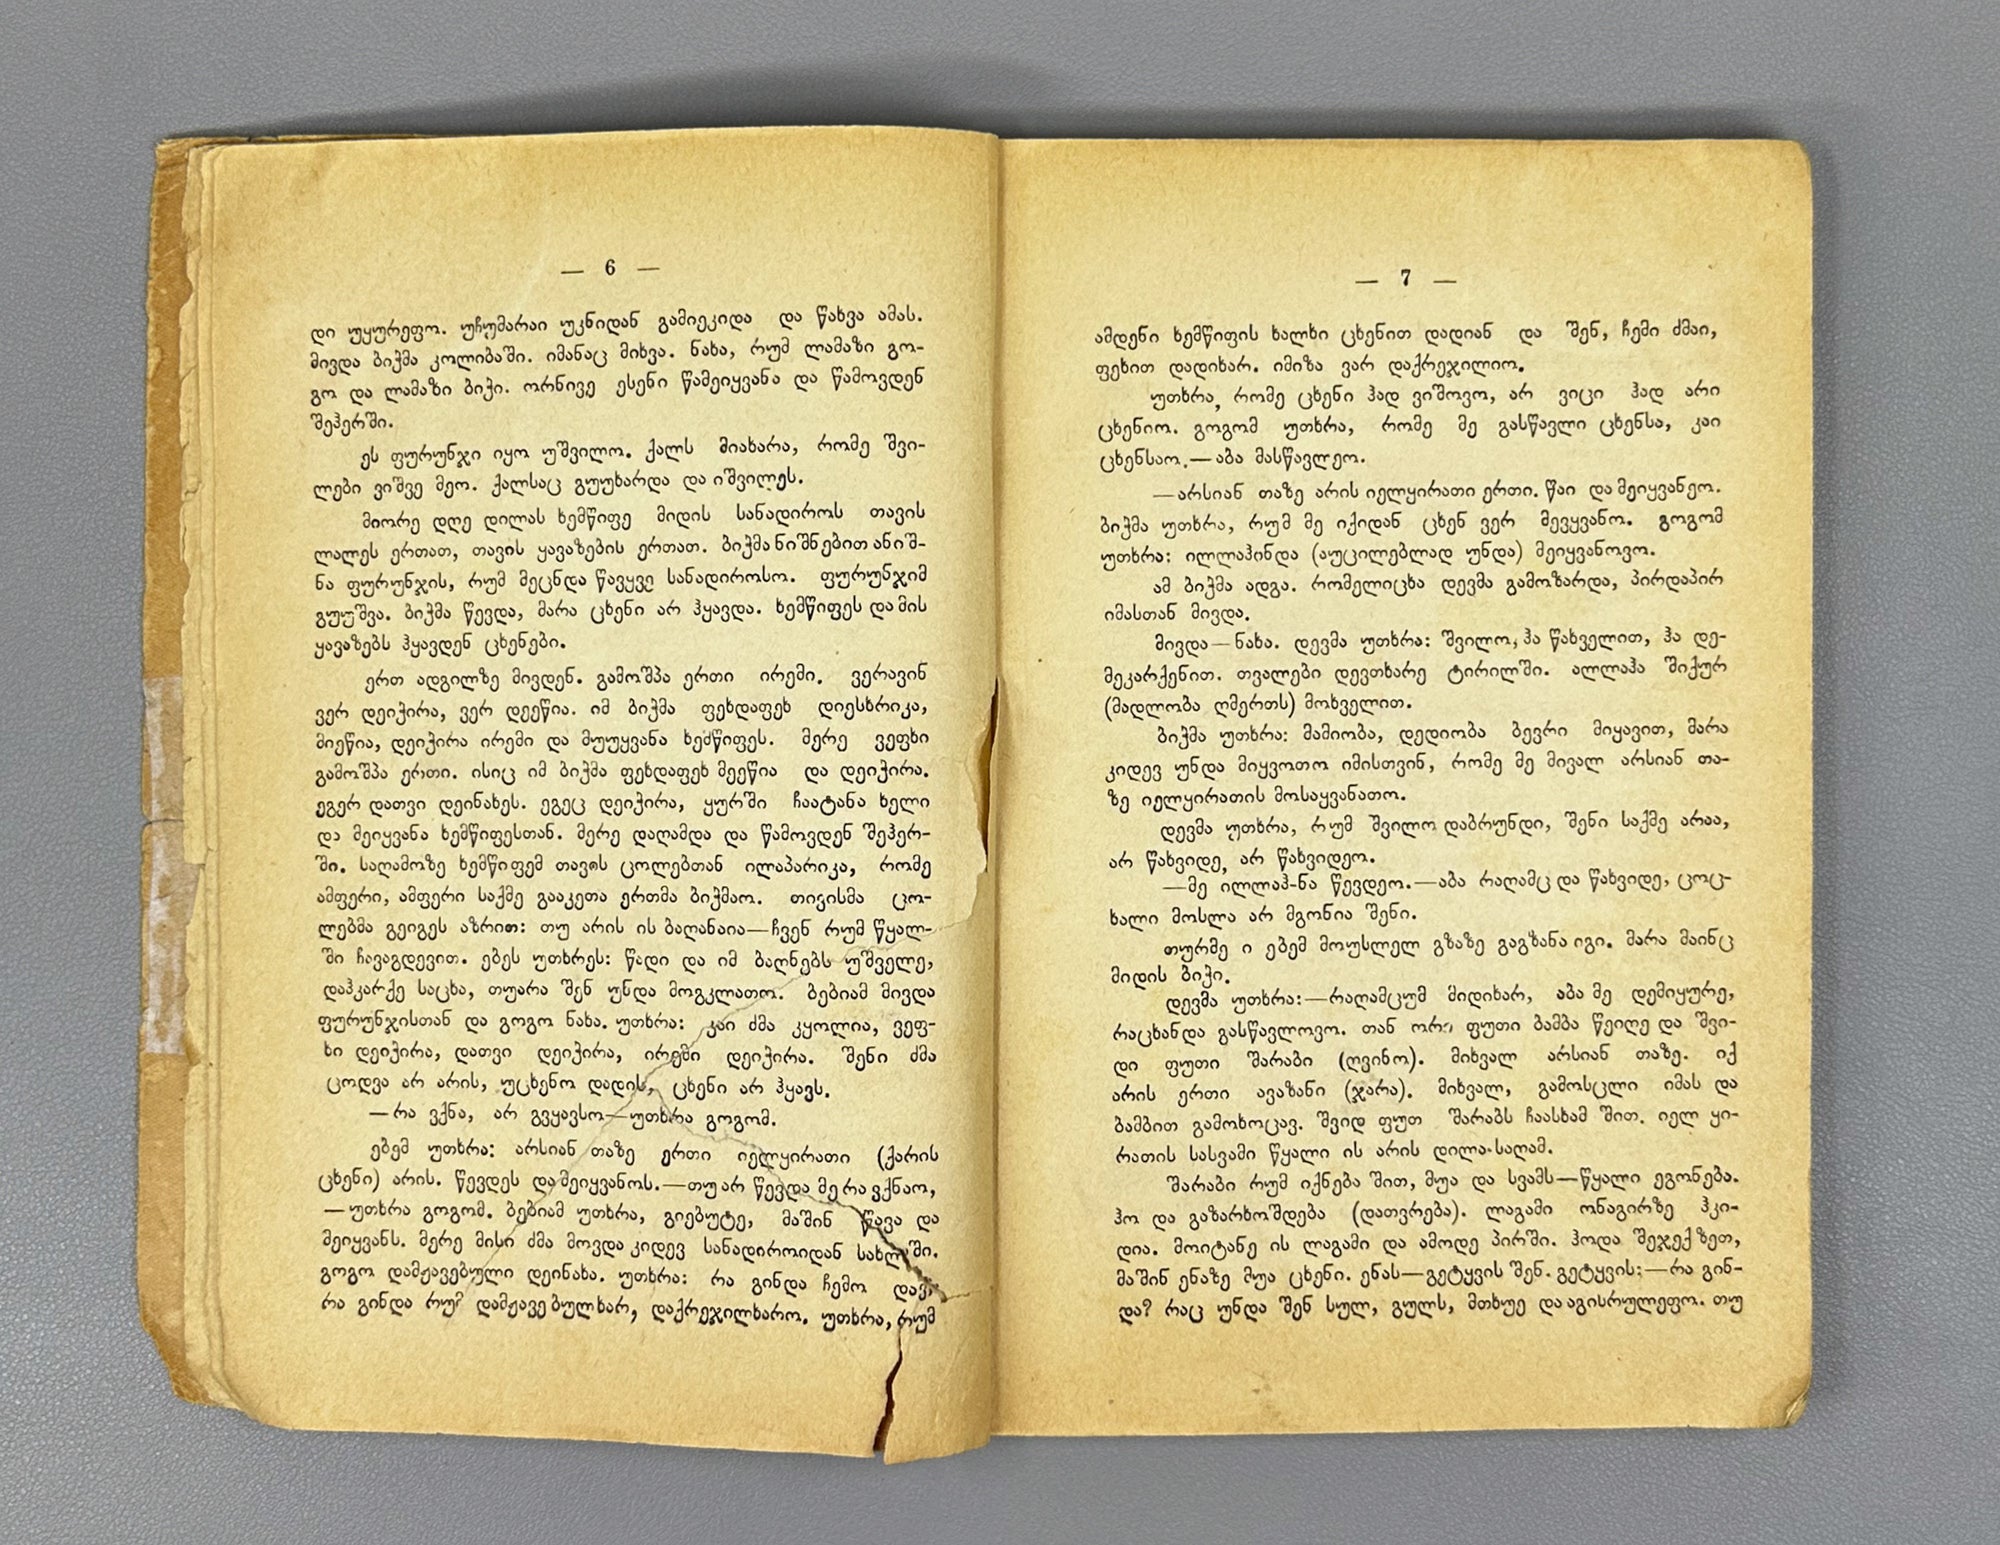 — 6 —
დი უყურეფო. უჩუმარაი უკნიდან გამიეკიდა და წახვა ამას.
მივდა ბიჭმა კოლიბაში. იმანაც მიხვა. ნახა, რუმ ლამაზი გო-
გო და ლამაზი ბიჭი. ორნივე ესენი წამეიყვანა და წამოვდენ
შეჰერში.
ეს ფურუნჯი იყო უშვილო. ქალს მიახარა, რომე შვი-
ლები ვიშვე მეო. ქალსაც გუუხარდა და იშვილეს.
მიორე დღე დილას ხემწიფე მიდის სანადიროს თავის
ლალეს ერთათ, თავის ყავაზების ერთათ. ბიჭმა ნიშნებით ანიშ-
ნა ფურუნჯის, რუმ მეცნდა წავყვე სანადიროსო. ფურუნჯიმ
გუუშვა. ბიჭმა წევდა, მარა ცხენი არ ჰყავდა. ხემწიფეს და მის
ყავაზებს ჰყავდენ ცხენები.
ერთ ადგილზე მივდენ. გამოშპა ერთი ირემი. ვერავინ
ვერ დეიჭირა, ვერ დეეწია. იმ ბიჭმა ფეხდაფეხ დიესხრიკა,
მიეწია, დეიჭირა ირემი და მუუყვანა ხემწიფეს. მერე ვეფხი
გამოშპა ერთი. ისიც იმ ბიჭმა ფეხდაფეხ მეეწია და დეიჭირა.
ეგერ დათვი დეინახეს. ეგეც დეიჭირა, ყურში ჩაატანა ხელი
და მეიყვანა ხემწიფესთან. მერე დაღამდა და წამოვდენ შეჰერ-
ში. საღამოზე ხემწიფემ თავის ცოლებთან ილაპარიკა, რომე
ამფერი, ამფერი საქმე გააკეთა ერთმა ბიჭმაო. თივისმა ცო-
ლებმა გეიგეს აზრით: თუ არის ის ბაღანაია—ჩვენ რუმ წყალ-
ში ჩავაგდევით. ებეს უთხრეს: წადი და იმ ბაღნებს უშველე,
დაჰკარქე საცხა, თუარა შენ უნდა მოგკლათო. ბებიამ მივდა
ფურუნჯისთან და გოგო ნახა. უთხრა: კაი ძმა კყოლია, ვეფ-
ხი დეიჭირა, დათვი დეიჭირა, ირემი დეიჭირა. შენი ძმა
ცოდვა არ არის, უცხენო დადის, ცხენი არ ჰყავს.
—რა ვქნა, არ გვყავსო—უთხრა გოგომ.
ებემ უთხრა: არსიან თაზე ერთი იელყირათი (ქარის
ცხენი) არის. წევდეს და მეიყვანოს.—თუ არ წევდა მე რა ვქნაო,
—უთხრა გოგომ. ბებიამ უთხრა, გიებუტე, მაშინ წავა და
მეიყვანს. მერე მისი ძმა მოვდა კიდევ სანადიროიდან სახლში.
გოგო დამჟავებული დეინახა. უთხრა: რა გინდა ჩემო დავ,
რა გინდა რუმ დამჟავებულხარ, დაქრეჯილხარო. უთხრა, რუმ
— 7 —
ამდენი ხემწიფის ხალხი ცხენით დადიან და შენ, ჩემი ძმაი,
ფეხით დადიხარ. იმიზა ვარ დაქრეჯილიო.
უთხრა, რომე ცხენი ჰად ვიშოვო, არ ვიცი ჰად არი
ცხენიო. გოგომ უთხრა, რომე მე გასწავლი ცხენსა, კაი
ცხენსაო.—აბა მასწავლეო.
—არსიან თაზე არის იელყირათი ერთი. წაი და მეიყვანეო.
ბიჭმა უთხრა, რუმ მე იქიდან ცხენ ვერ მევყვანო. გოგომ
უთხრა: ილლაჰინდა (აუცილებლად უნდა) მეიყვანოვო.
ამ ბიჭმა ადგა. რომელიცხა დევმა გამოზარდა, პირდაპირ
იმასთან მივდა.
მივდა—ნახა. დევმა უთხრა: შვილო, ჰა წახველით, ჰა დე-
მეკარქენით. თვალები დევთხარე ტირილში. ალლაჰა შიქურ
(მადლობა ღმერთს) მოხველით.
ბიჭმა უთხრა: მამიობა, დედიობა ბევრი მიყავით, მარა
კიდევ უნდა მიყვოთო იმისთვინ, რომე მე მივალ არსიან თა-
ზე იელყირათის მოსაყვანათო.
დევმა უთხრა, რუმ შვილო დაბრუნდი, შენი საქმე არაა,
არ წახვიდე, არ წახვიდეო.
—მე ილლაჰ-ნა წევდეო.—აბა რაღამც და წახვიდე, ცოც-
ხალი მოსლა არ მგონია შენი.
თურმე ი ებემ მოუსლელ გზაზე გაგზანა იგი. მარა მაინც
მიდის ბიჭი.
დევმა უთხრა:—რაღამცუმ მიდიხარ, აბა მე დემიყურე,
რაცხანდა გასწავლოვო. თან ორი ფუთი ბამბა წეიღე და შვი-
დი ფუთი შარაბი (ღვინო). მიხვალ არსიან თაზე. იქ
არის ერთი ავაზანი (ჯარა). მიხვალ, გამოსცლი იმას და
ბამბით გამოხოცავ. შვიდ ფუთ შარაბს ჩაასხამ შით. იელ ყი-
რათის სასვამი წყალი ის არის დილა-საღამ.
შარაბი რუმ იქნება შით, მუა და სვამს—წყალი ეგონება.
ჰო და გაზარხოშდება (დათვრება). ლაგამი ონაგირზე ჰკი-
დია. მოიტანე ის ლაგამი და ამოდე პირში. ჰოდა შეჯექ ზეთ,
მაშინ ენაზე მუა ცხენი. ენას—გეტყვის შენ. გეტყვის:—რა გინ-
და? რაც უნდა შენ სულ, გულს, მთხუე და აგისრულეფო. თუ